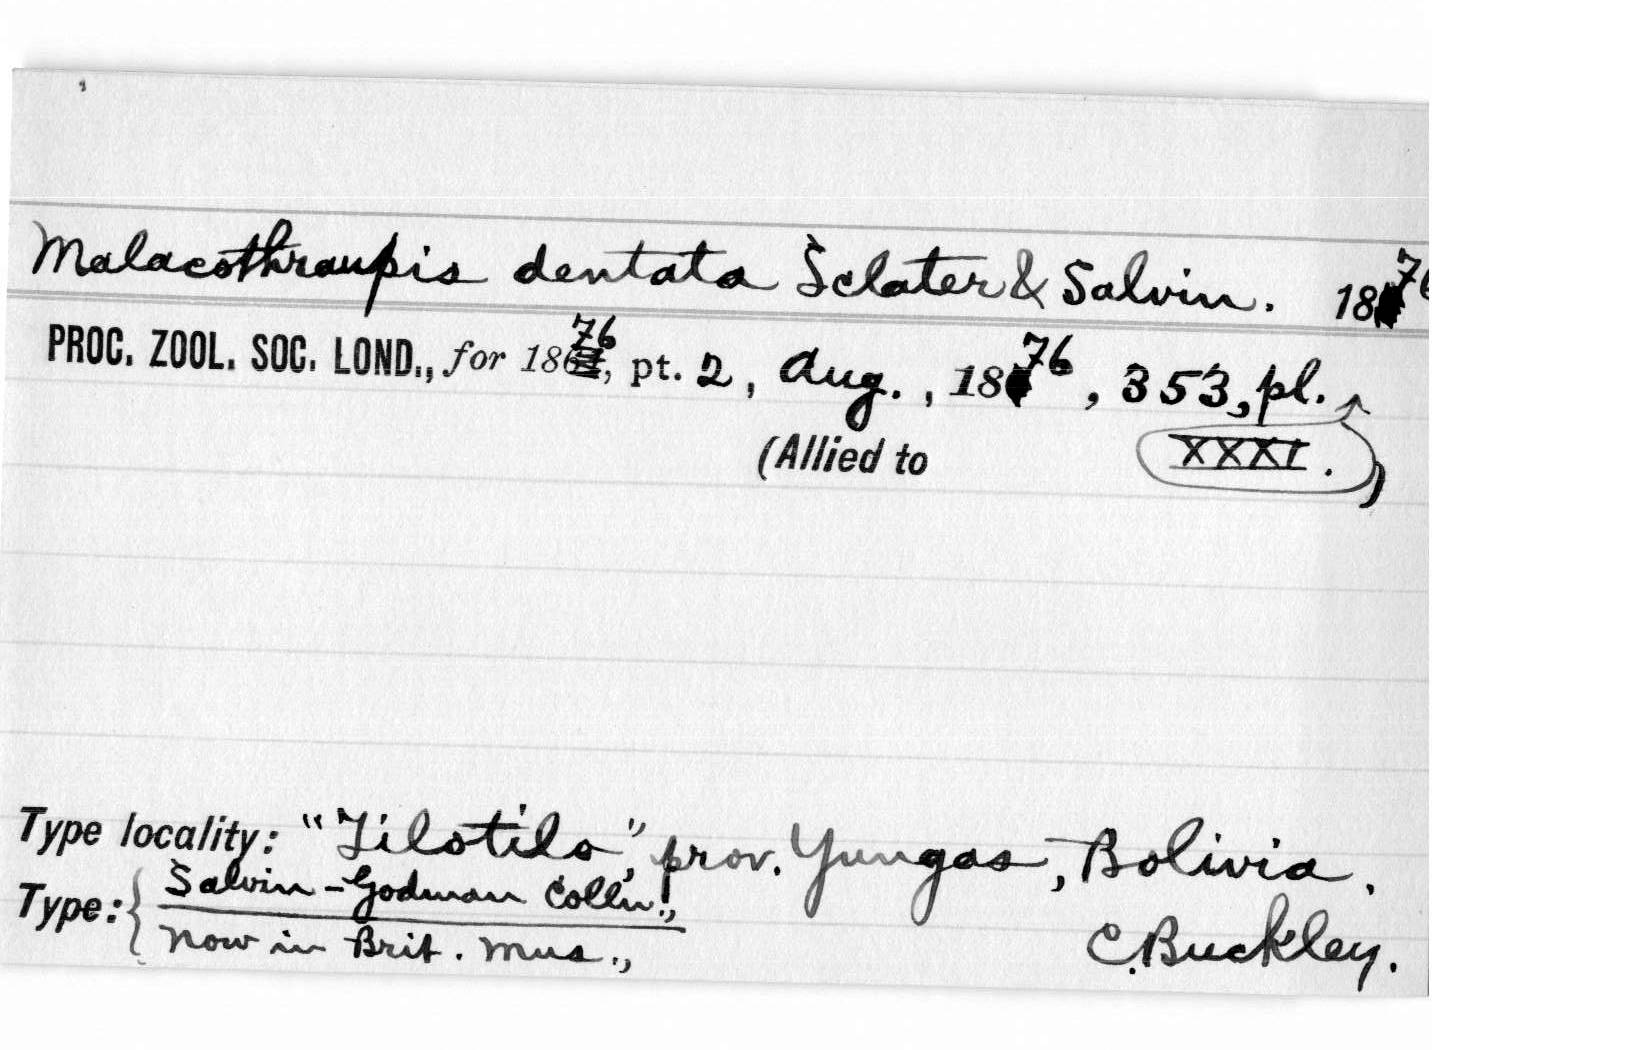 Malacothraupis dentata Sclater & Salvin. 1876
PROC. ZOOL. SOC. LOND., for 1876, pt. 2, Aug., 1876, 353, pl.
(Allied to XXXI. )
Type locality: "Tilotilo", prov. Yungas, Bolivia.
Type: { Salvin-Godman Colln.,
now in Brit. Mus.,
C. Buckley.